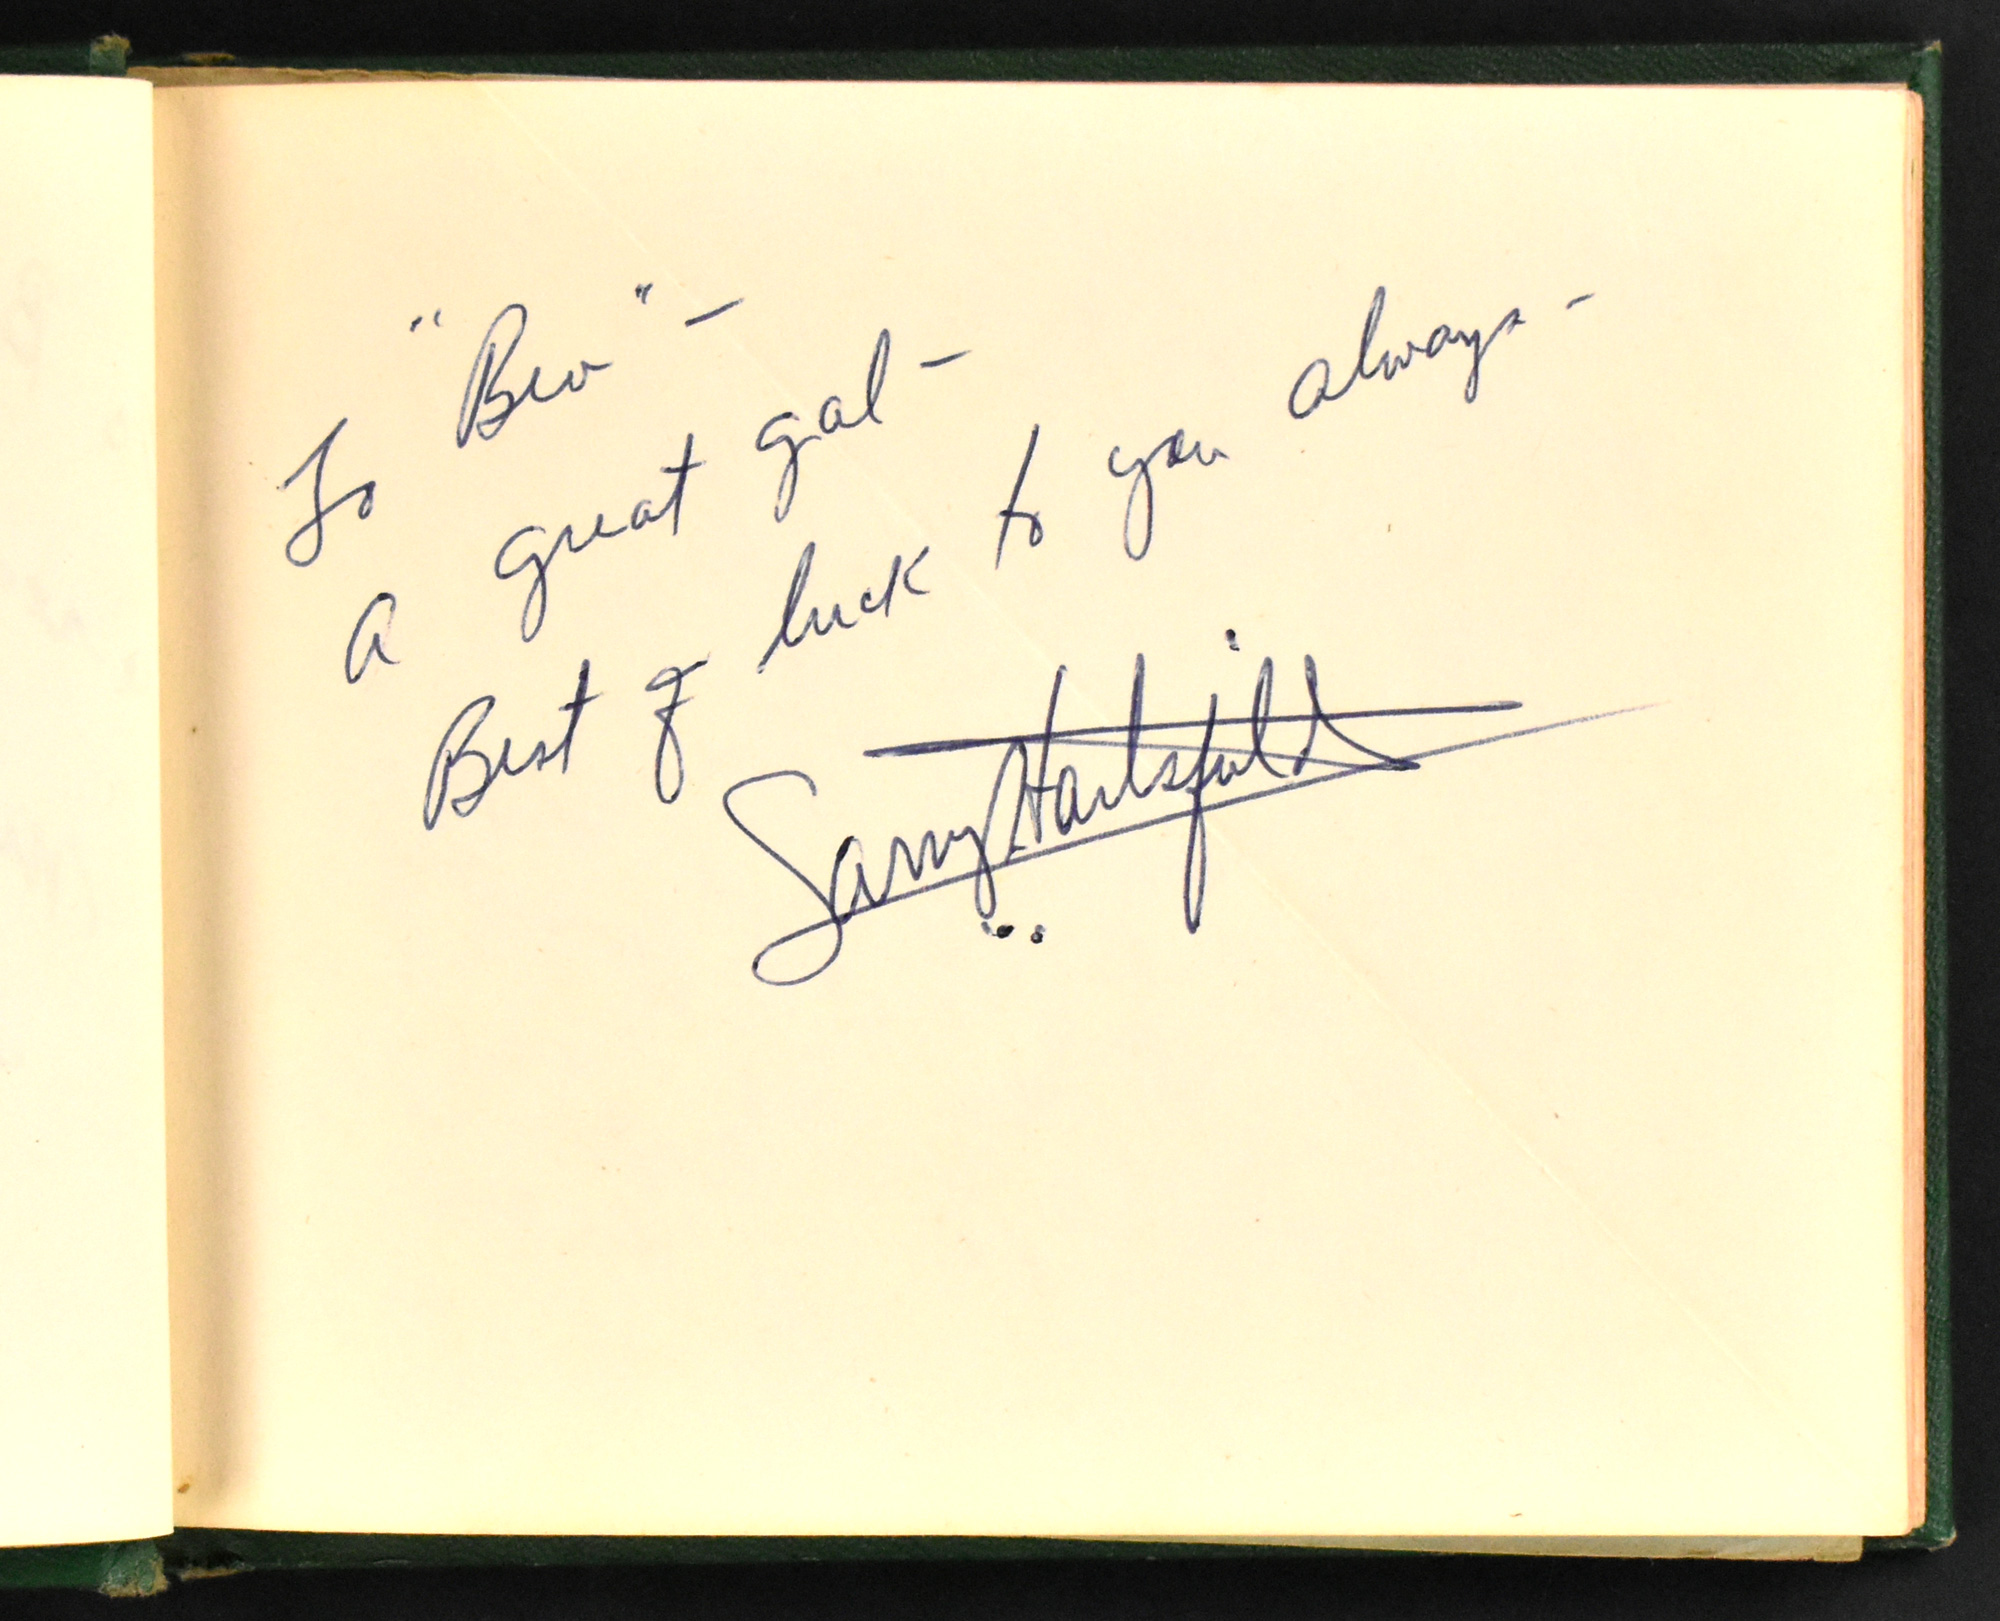 To "Bev" -
a great gal -
Best of luck to you always -
Larry Hartsfield